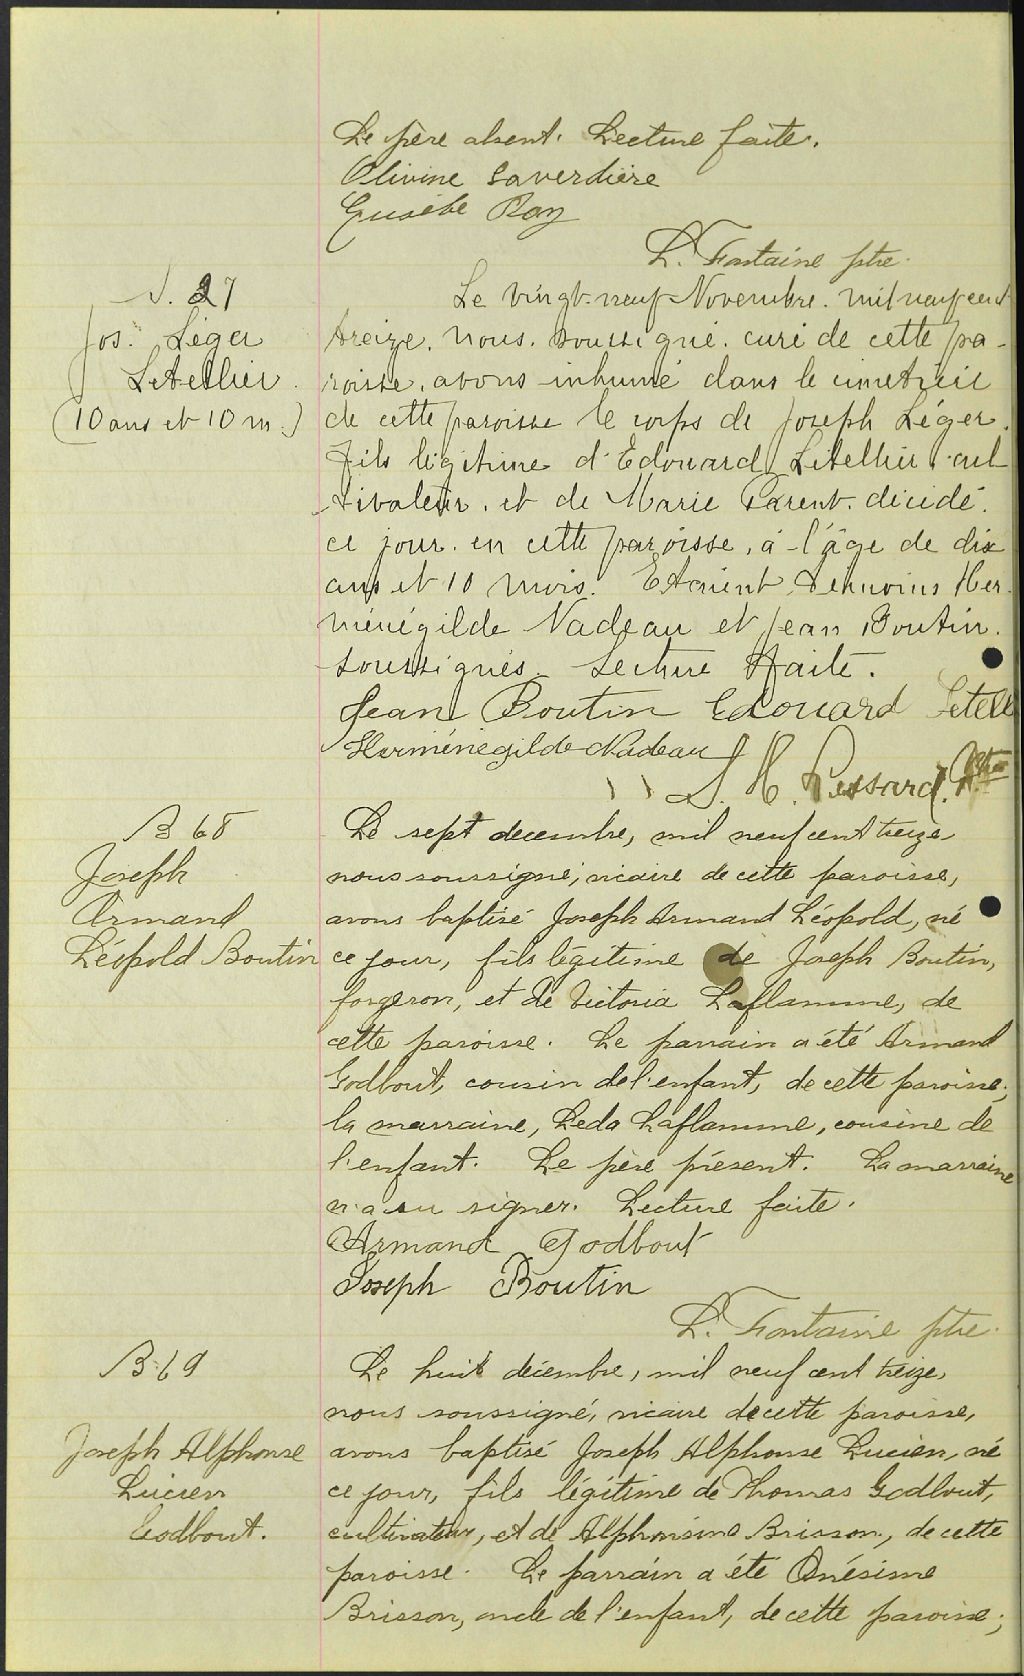 Le père absent. Lecture faite.
Olivine Laverdière
Eusèbe Roy
L. Fontaine ptre.
S. 27
Jos. Léger
Letellier
(10 ans et 10 m.)
Le vingt-neuf Novembre. mil neuf cent
treize. nous. soussigné. curé de cette pa-
roisse, avons inhumé dans le cimetière
de cette paroisse le corps de Joseph Léger.
Fils légitime d'Edouard Letellier, cul
tivateur. et de Marie Parent. décidé.
ce jour. en cette paroisse, à l'âge de dix
ans et 10 mois. Etaient témoins Her-
ménégilde Nadeau et Jean Boutin.
soussignés. Lecture faite.
Jean Boutin Edouard Letell
Herménégilde Nadeau
Ptre
B 68
Joseph
Armand
Léopold Boutin
Le sept decembre, mil neuf cent treize
nous soussigné, vicaire de cette paroisse,
avons baptisé Joseph Armand Léopold, né
ce jour, fils légitime de Joseph Boutin,
forgeron, et de Victoria Laflamme, de
cette paroisse. Le parrain a été Armand
Godbout, cousin de l'enfant, de cette paroisse;
la marraine, Leda Laflamme, cousine de
l'enfant. Le père présent. La marraine
n'a su signer. Lecture faite.
Armand Godbout
Joseph Boutin
L. Fontaine ptre.
B 69
Joseph Alphonse
Lucien
Godbout.
Le huit décembre, mil neuf cent treize,
nous soussigné, vicaire de cette paroisse,
avons baptisé Joseph Alphonse Lucien, né
ce jour, fils légitime de Thomas Godbout,
cultivateur, et de Alphonsine Brisson, de cette
paroisse. Le parrain a été Onésime
Brisson, oncle de l'enfant, de cette paroisse;